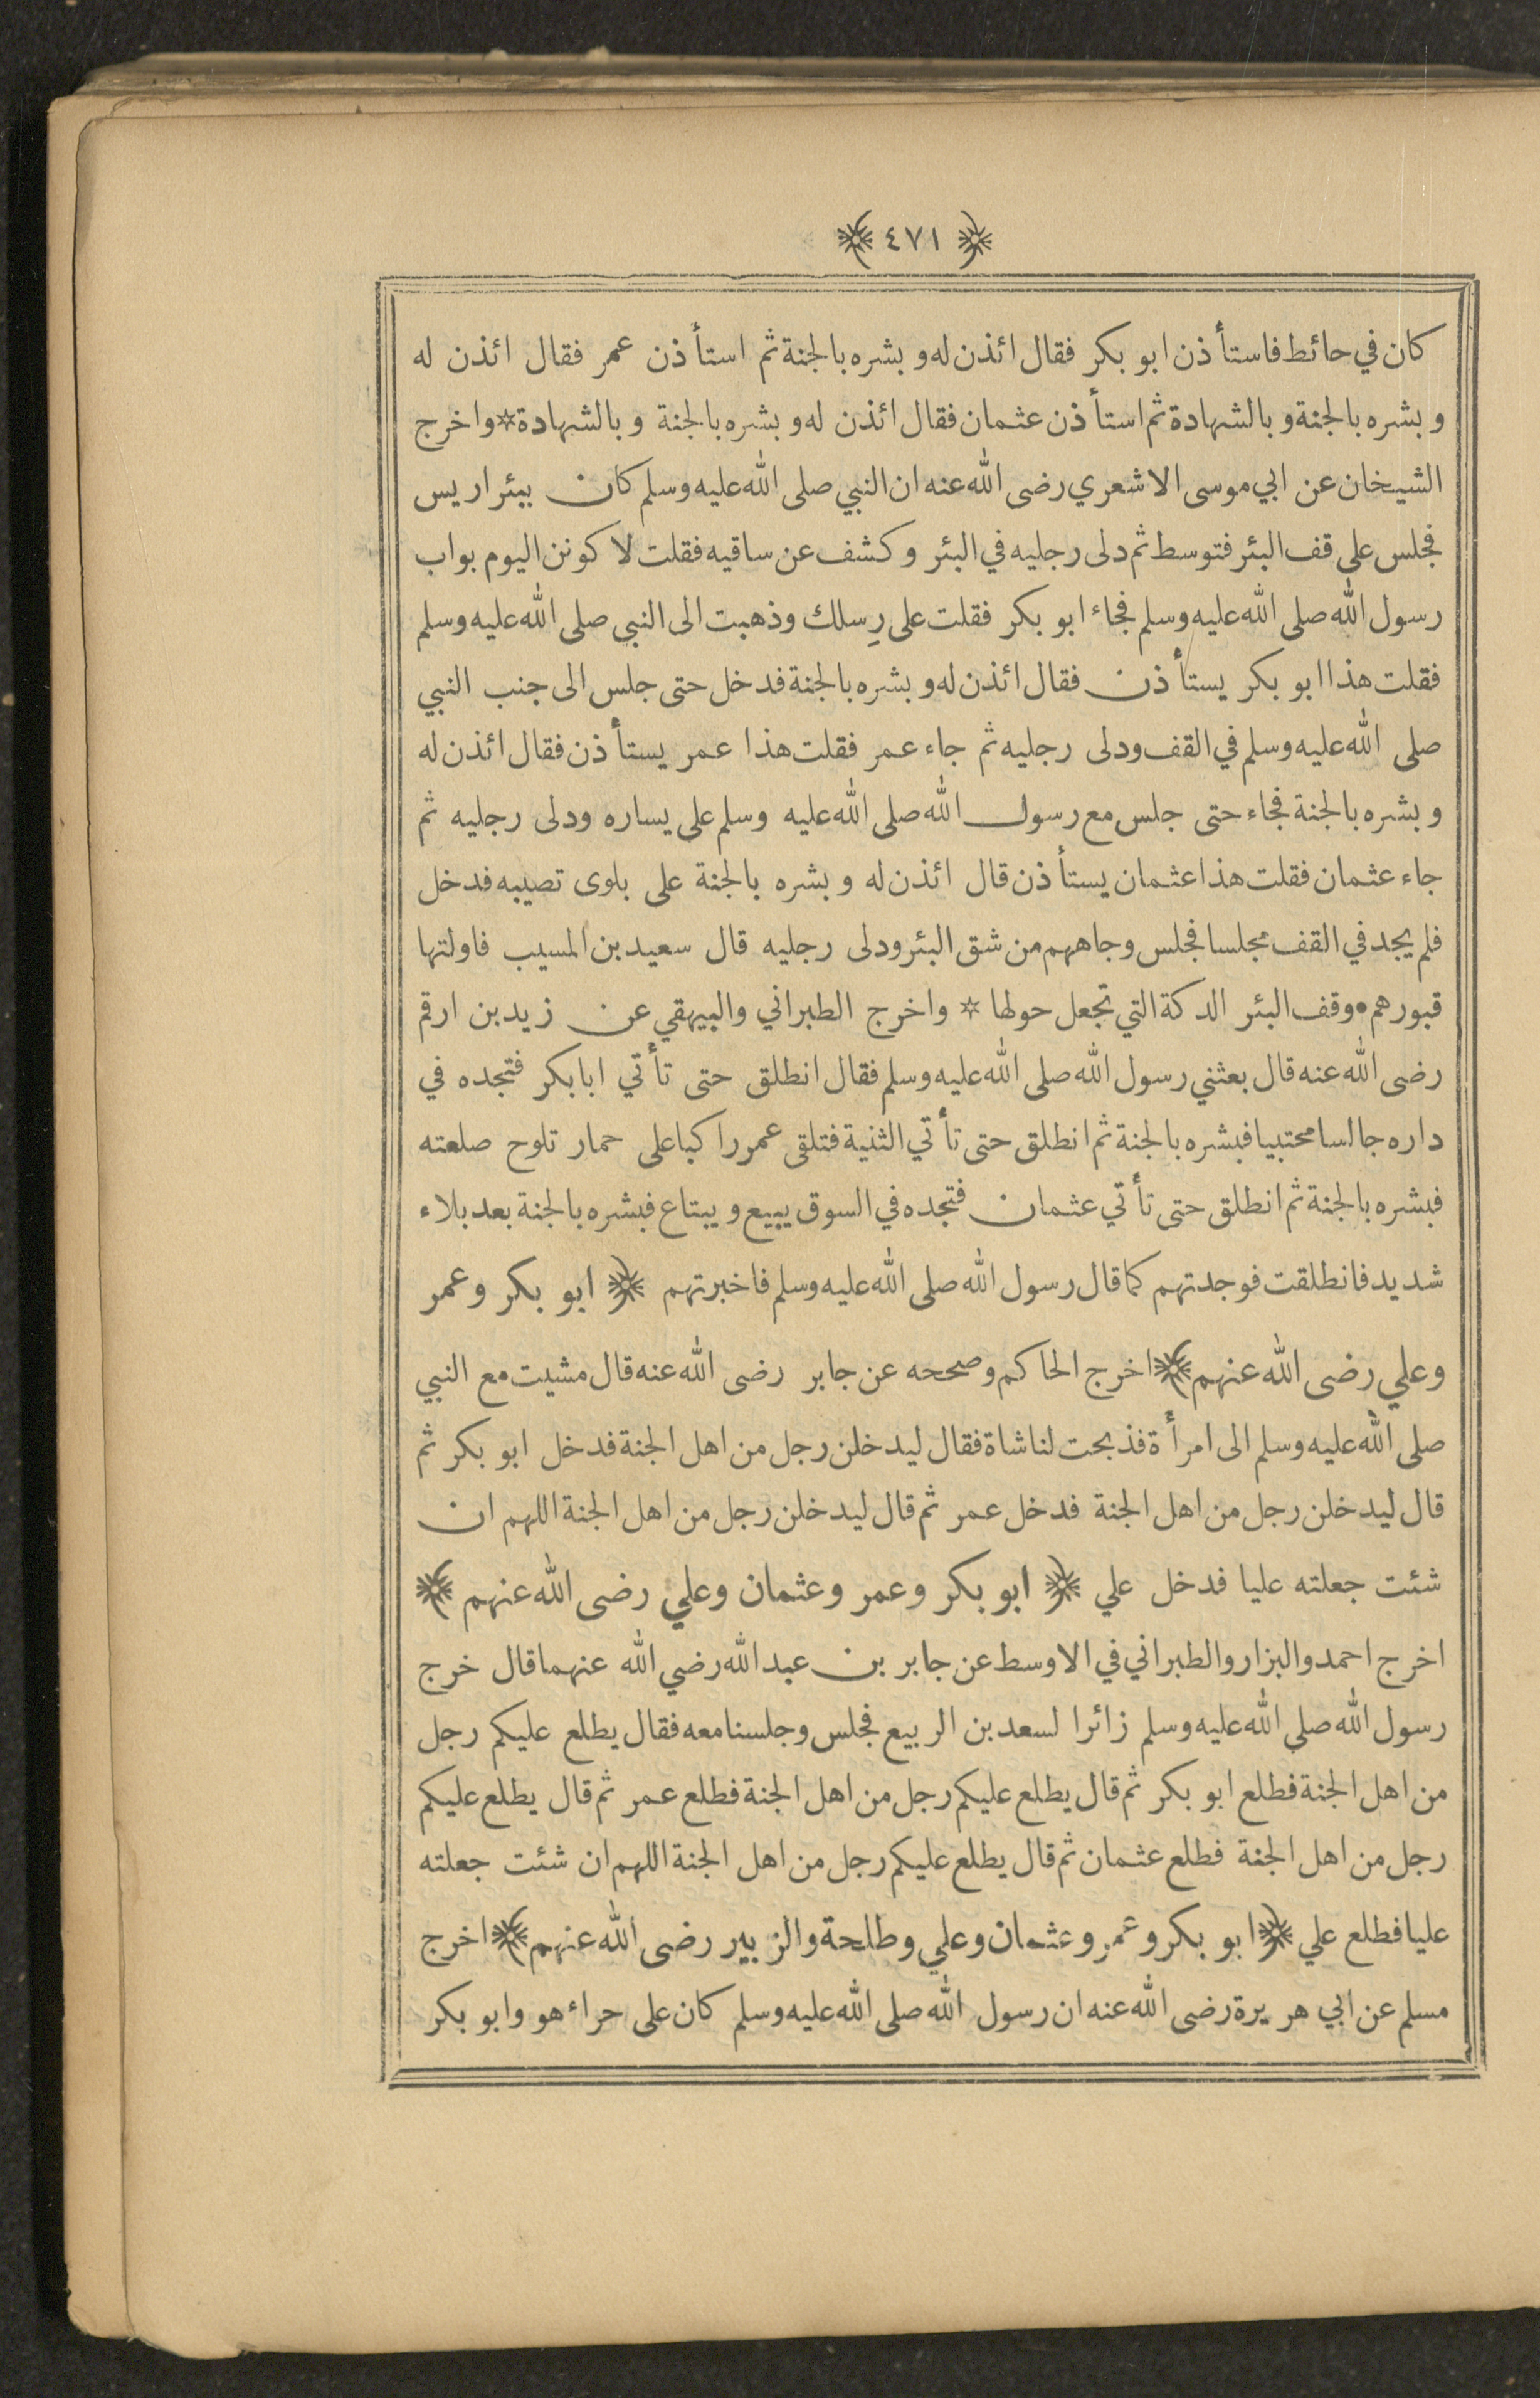 ﴿ ٤٧١ ﴾
كان في حائط فاستأذن ابو بكر فقال ائذن له و بشره بالجنة ثم استأذن عمر فقال ائذن له
و بشره بالجنة و بالشهادة ثم استأذن عثمان فقال ائذن له و بشره بالجنة و بالشهادة * واخرج
الشيخان عن ابي موسى الاشعري رضى الله عنه ان النبي صلى الله عليه وسلم كان ببئر اريس
فجلس على قف البئر فتوسط ثم دلى رجليه في البئر وكشف عن ساقيه فقلت لاكونن اليوم بواب
رسول الله صلى الله عليه وسلم فجاء ابو بكر فقلت على رِسلك وذهبت الى النبي صلى الله عليه وسلم
فقلت هذا ابو بكر يستأذن فقال ائذن له و بشره بالجنة فدخل حتى جلس الى جنب النبي
صلى الله عليه وسلم في القف ودلى رجليه ثم جاء عمر فقلت هذا عمر يستأذن فقال ائذن له
و بشره بالجنة فجاء حتى جلس مع رسول الله صلى الله عليه وسلم على يساره ودلى رجليه ثم
جاء عثمان فقلت هذا عثمان يستأذن قال ائذن له و بشره بالجنة على بلوى تصيبه فدخل
فلم يجد في القف مجلسا فجلس وجاههم من شق البئر ودلى رجليه قال سعيد بن المسيب فاولتها
قبورهم • وقف البئر الدكة التي تجعل حولها * واخرج الطبراني والبيهقي عن زيد بن ارقم
رضى الله عنه قال بعثني رسول الله صلى الله عليه وسلم فقال انطلق حتى تأتي ابا بكر فتجده في
داره جالسا محتبيا فبشره بالجنة ثم انطلق حتى تأتي الثنية فتلقى عمر راكبا على حمار تلوح صلعته
فبشره بالجنة ثم انطلق حتى تأتي عثمان فتجده في السوق يبيع و يبتاع فبشره بالجنة بعد بلاء
شديد فانطلقت فوجدتهم كما قال رسول الله صلى الله عليه وسلم فاخبرتهم ﴿ ابو بكر وعمر
وعلي رضى الله عنهم ﴾ اخرج الحاكم وصححه عن جابر رضى الله عنه قال مشيت مع النبي
صلى الله عليه وسلم الى امرأة فذبحت لنا شاة فقال ليدخلن رجل من اهل الجنة فدخل ابو بكر ثم
قال ليدخلن رجل من اهل الجنة فدخل عمر ثم قال ليدخلن رجل من اهل الجنة اللهم ان
شئت جعلته عليا فدخل علي ﴿ ابو بكر وعمر وعثمان وعلي رضى الله عنهم ﴾
اخرج احمد والبزار والطبراني في الاوسط عن جابر بن عبد الله رضي الله عنهما قال خرج
رسول الله صلى الله عليه وسلم زائرا لسعد بن الربيع فجلس وجلسنا معه فقال يطلع عليكم رجل
من اهل الجنة فطلع ابو بكر ثم قال يطلع عليكم رجل من اهل الجنة فطلع عمر ثم قال يطلع عليكم
رجل من اهل الجنة فطلع عثمان ثم قال يطلع عليكم رجل من اهل الجنة اللهم ان شئت جعلته
عليا فطلع علي ﴿ ابو بكر وعمر وعثمان وعلي وطلحة والزبير رضى الله عنهم ﴾ اخرج
مسلم عن ابي هريرة رضى الله عنه ان رسول الله صلى الله عليه وسلم كان على حراء هو وابو بكر